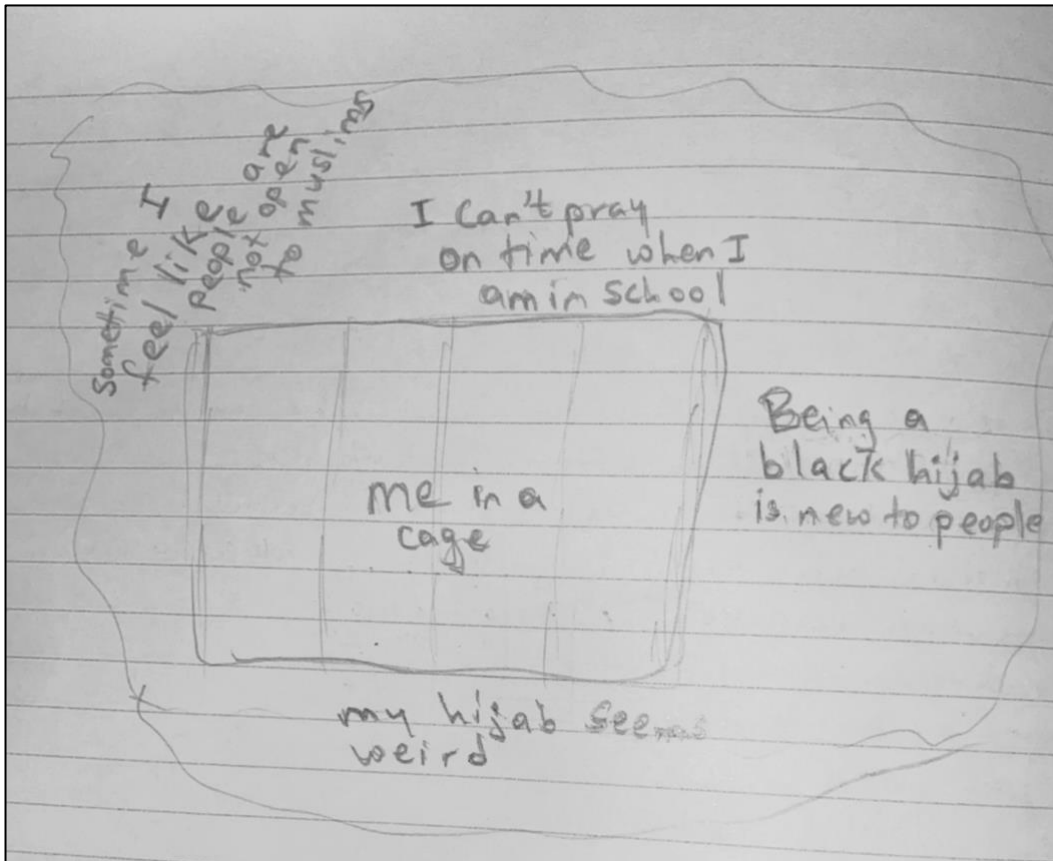 Sometime I
feel like
people are
not open
to muslims
I can't pray
on time when I
am in school
Being a
black hijab
is new to people
me in a
cage
my hijab seems
weird